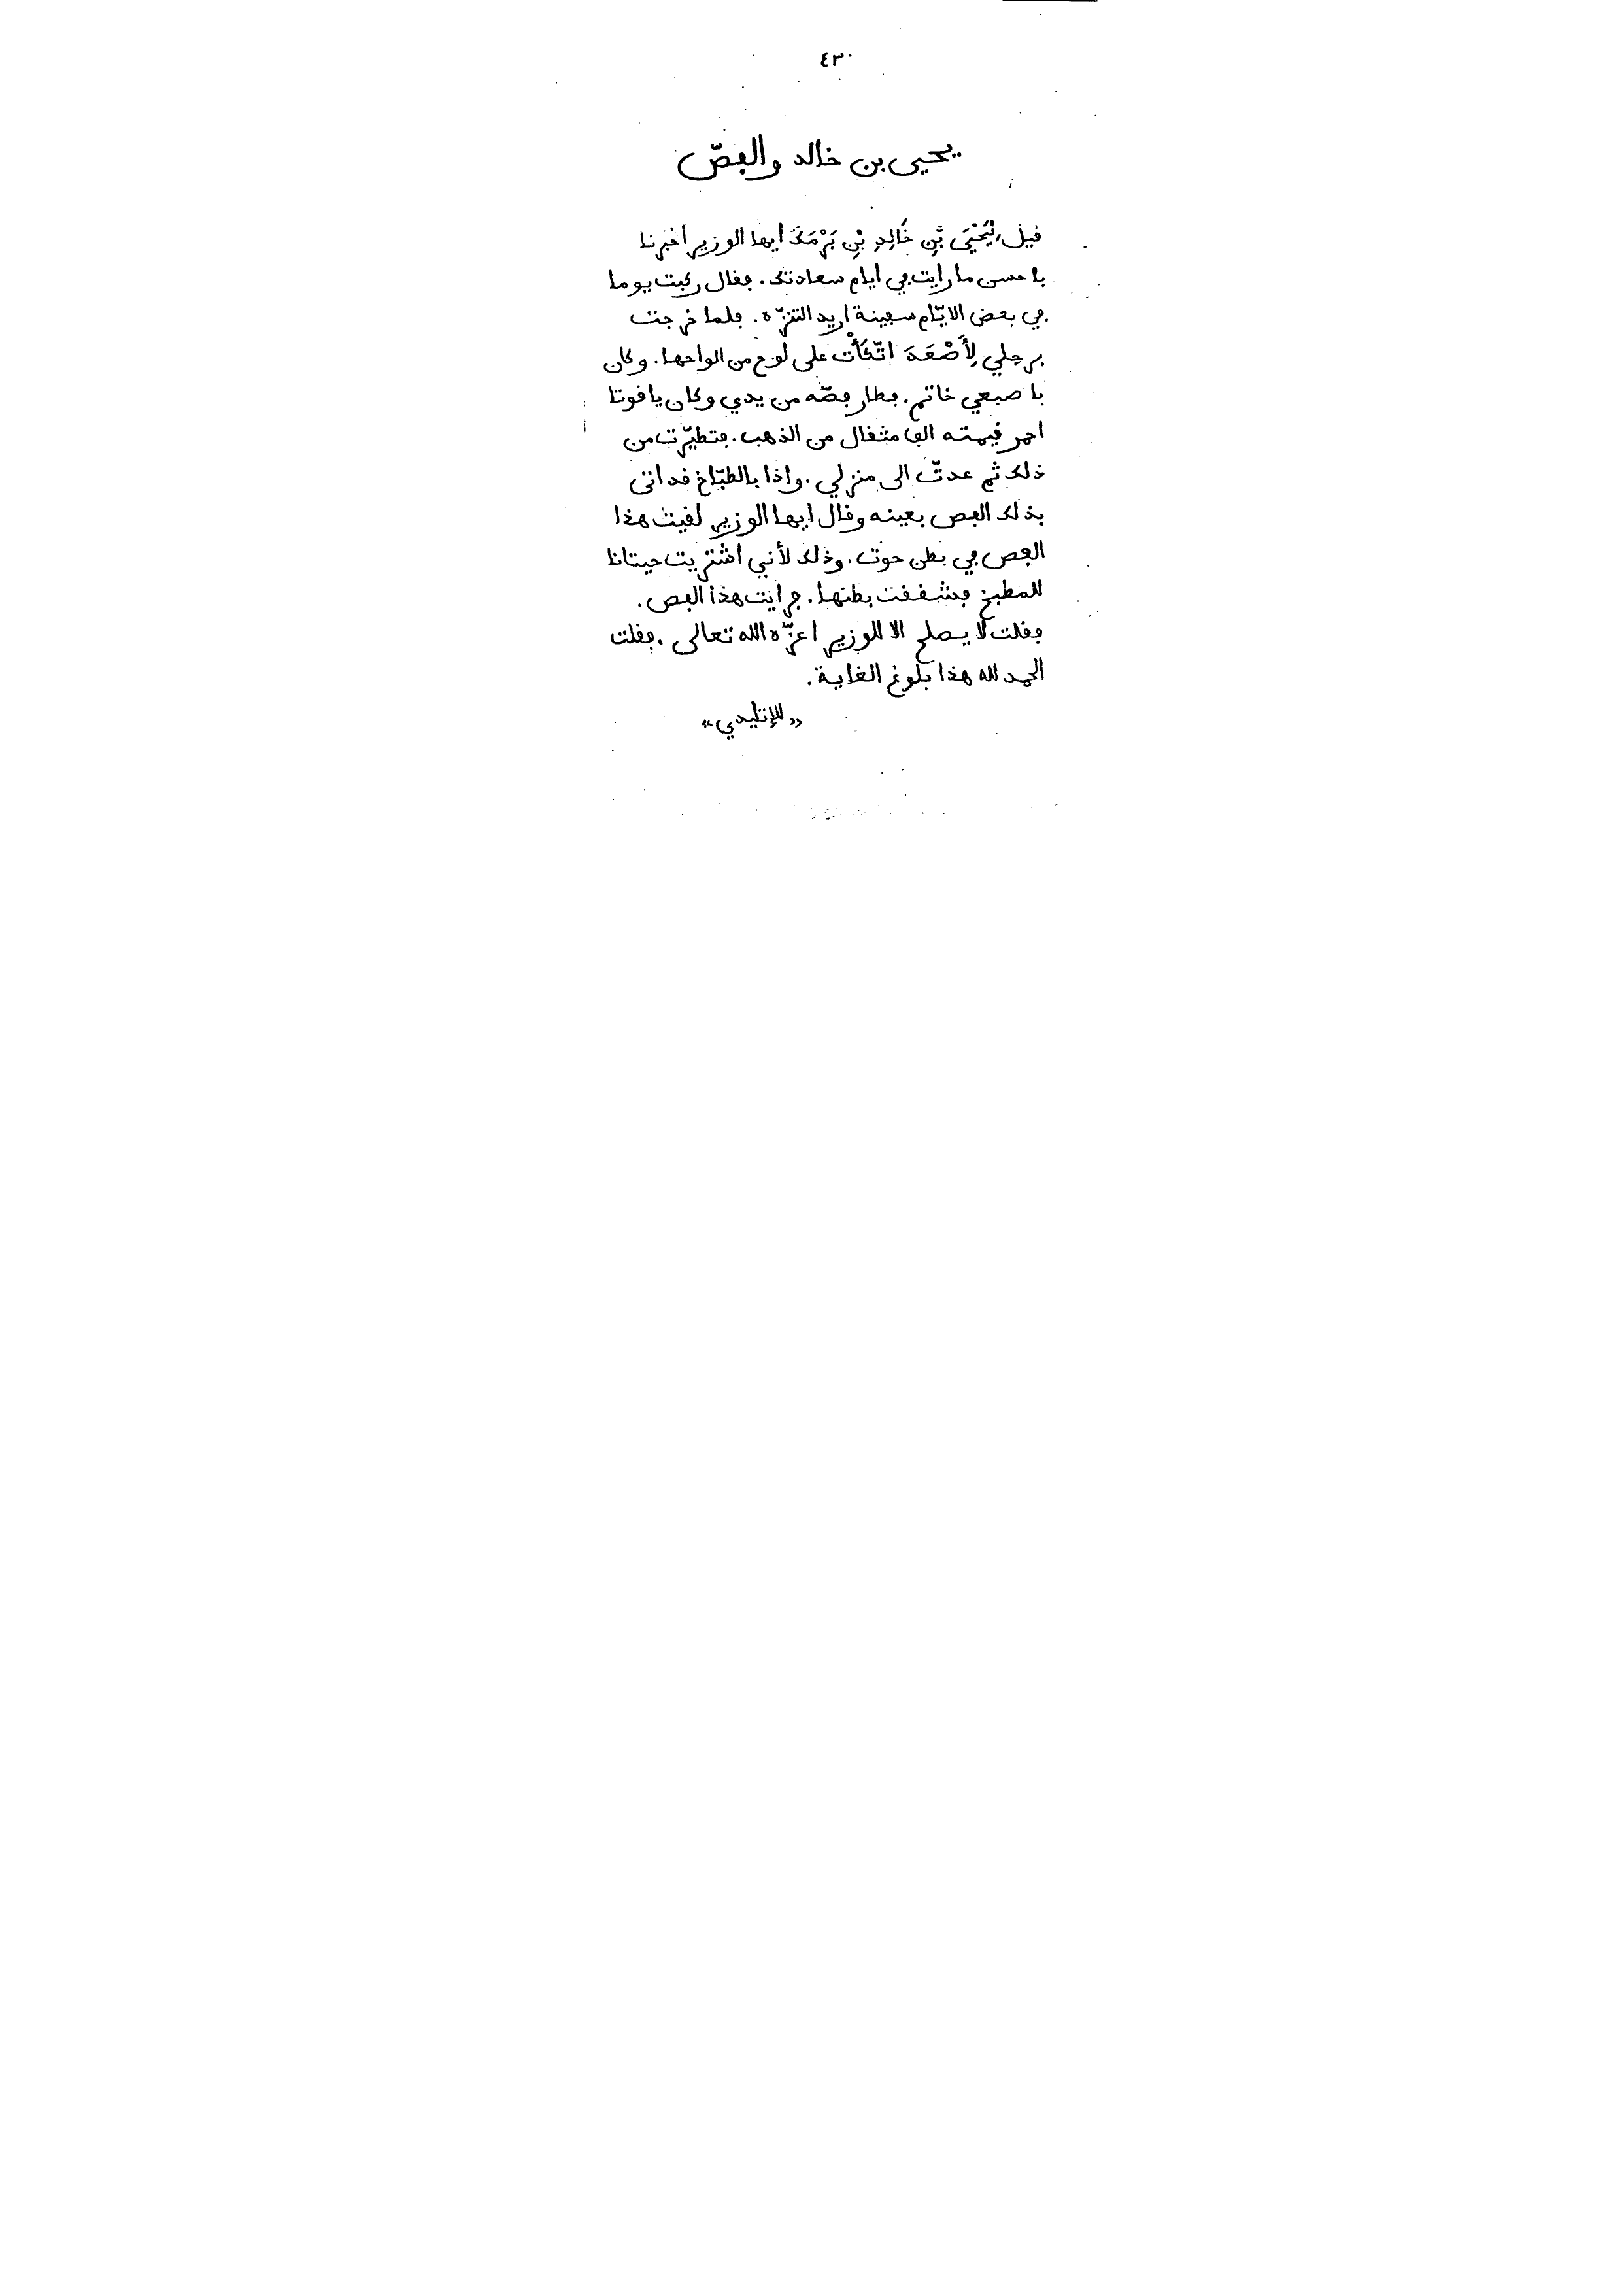 ٤٣٠
يحيى بن خالد والفصّ
قيل لِيَحْيَى بْنِ خَالِدِ بْنِ بَرْمَكَ أيها الوزير أخبرنا
باحسن ما رايت في ايام سعادتك. فقال ركبت يوما
في بعض الايّام سفينة اريد التنزّه. فلما خرجت
برجلي لِأَصْعَدَ اتّكَأْت على لوح من الواحها. وكان
باصبعي خاتم. فطار فصّه من يدي وكان ياقوتا
احمر قيمته الف مثقال من الذهب. فتطيّرت من
ذلك ثم عدتّ الى منزلي. واذا بالطبّاخ قد اتى
بذلك الفص بعينه وقال ايها الوزير لقيت هذا
الفص في بطن حوت. وذلك لأني اشتريت حيتانا
للمطبخ فشققت بطنها. فرايت هذا الفص.
فقلت لا يصلح الا للوزير اعزّه الله تعالى. فقلت
الحمد لله هذا بلوغ الغاية.
«للإتليدي»